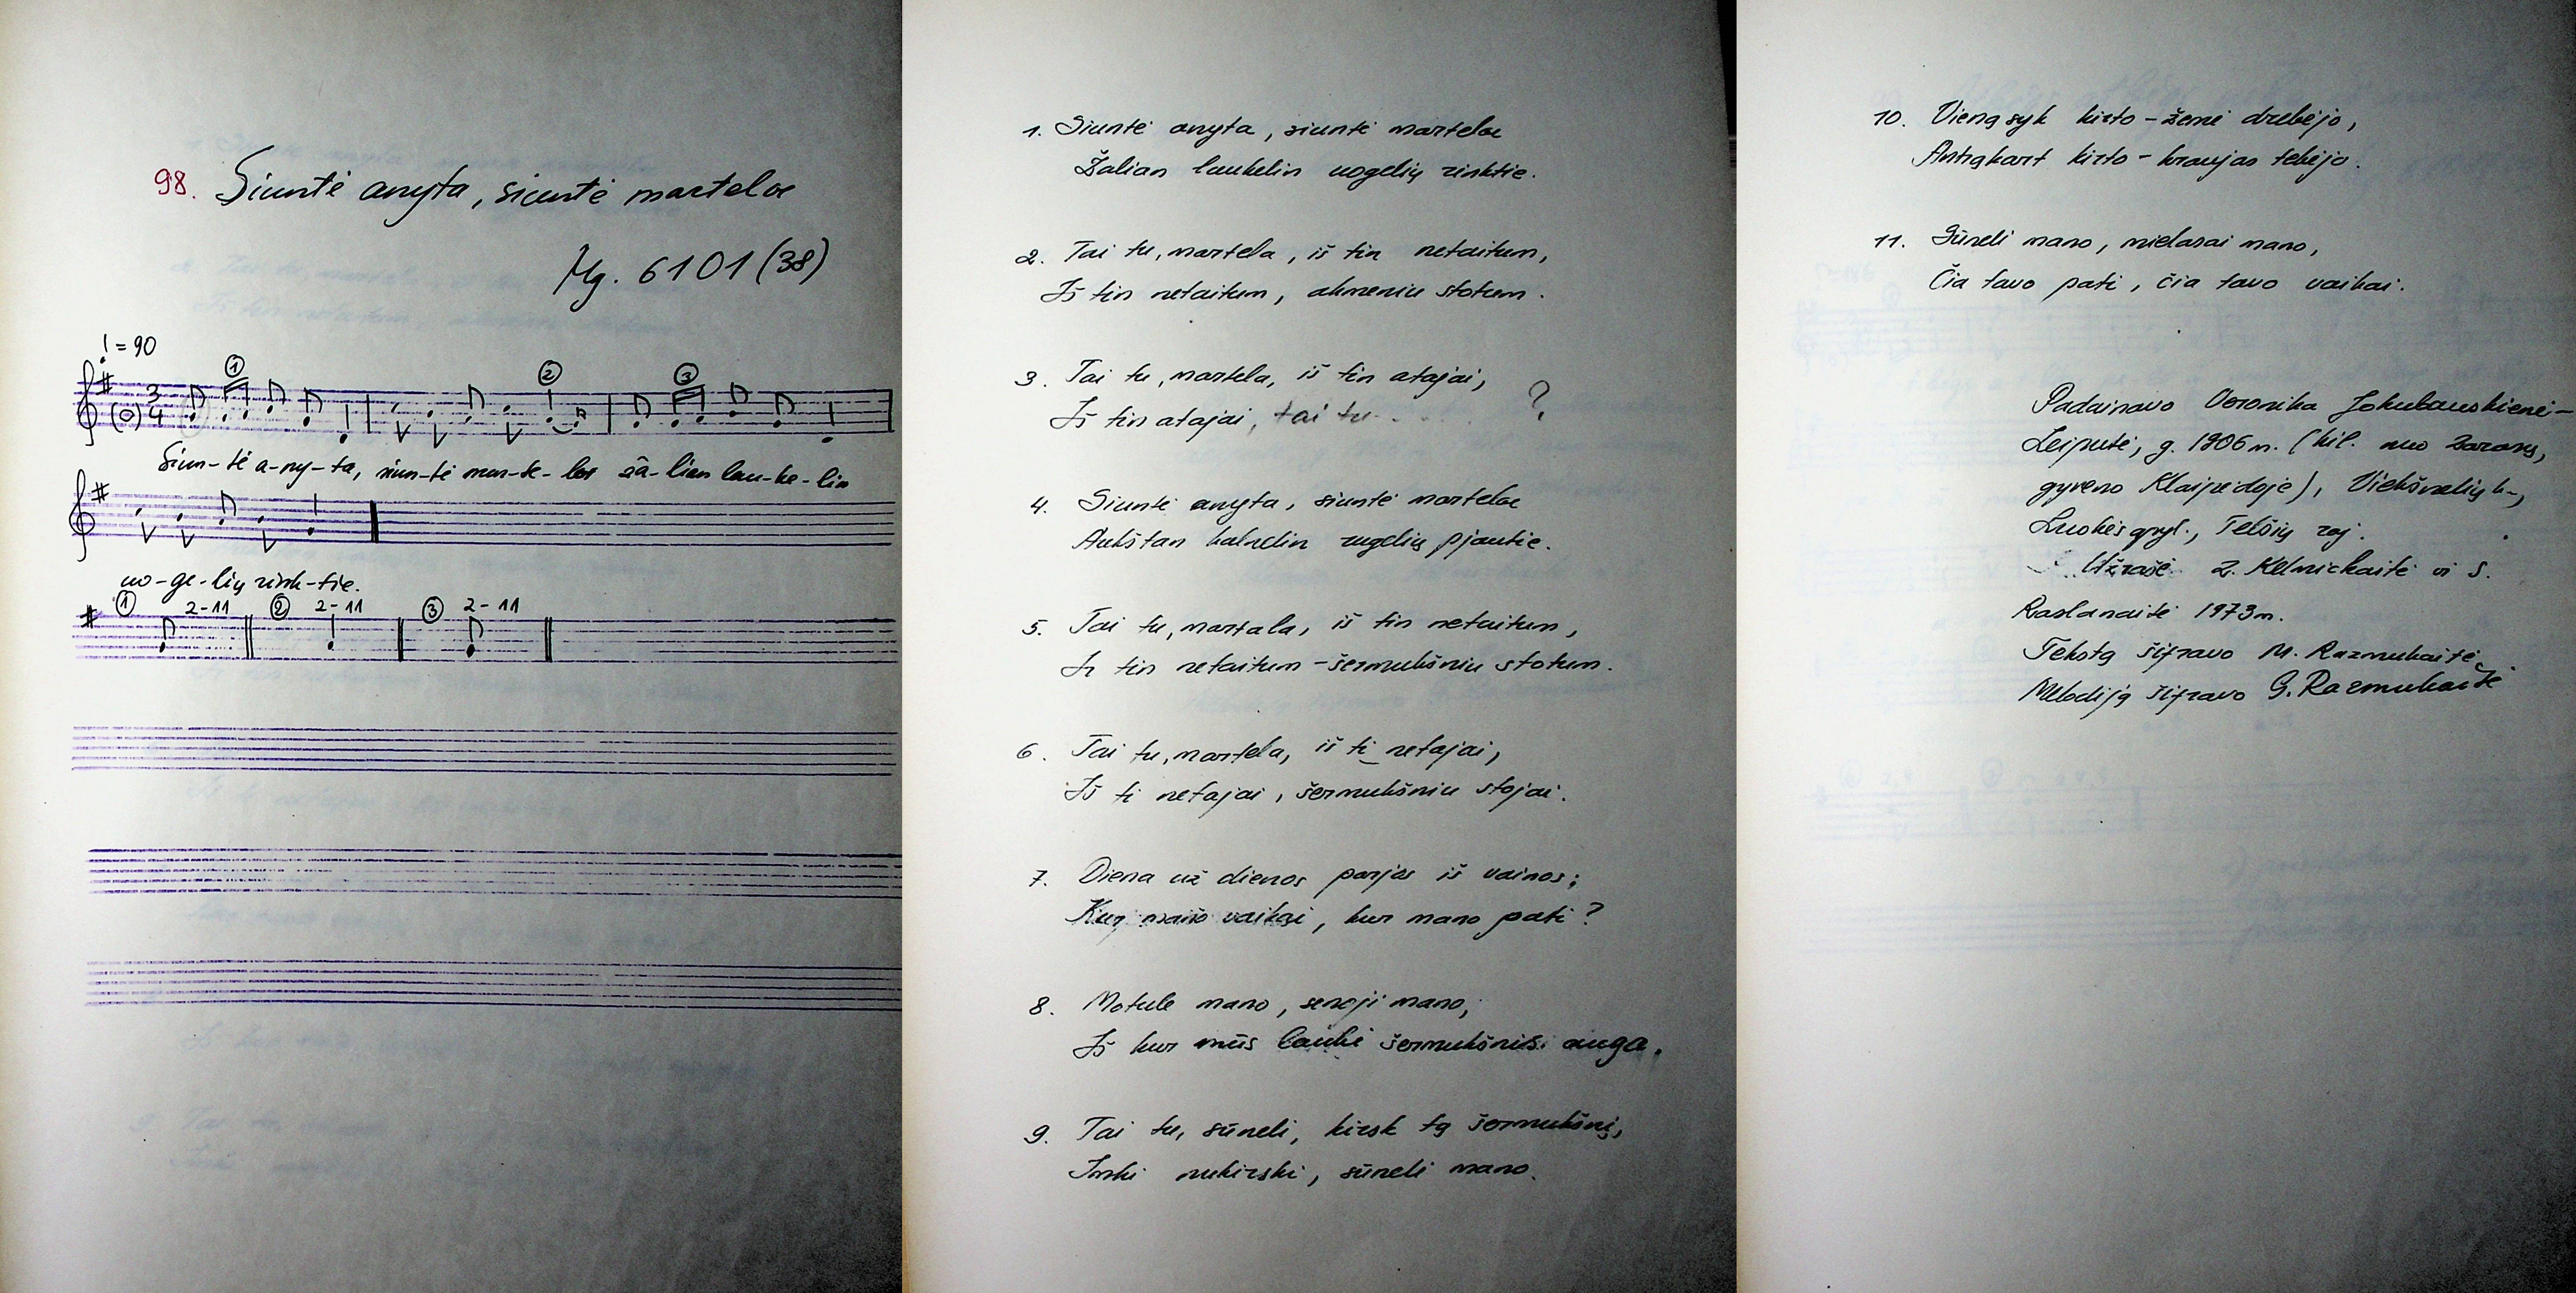 98. Siuntė anyta, siuntė martelæ
Mg. 6101 (38)
= 90
① ② ③
3
4
Siun-tė a-ny-ta, siun-tė mar-te-læ žà-lian lau-ke-lin
uo-ge-lių rink-tie.
① 2-11 ② 2-11 ③ 2-11
1. Siuntė anyta, siuntė martelæ
Žalian laukelin uogelių rinktie.
2. Tai tu, martela, iš tin netaitum,
Iš tin netaitum, akmeniu stotum.
3. Tai tu, martela, iš tin atajai,
Iš tin atajai, tai tu . . . . ?
4. Siuntė anyta, siuntė martelæ
Aukštan kalnelin rugelių pjautie.
5. Tai tu, martala, iš tin netaitum,
Iš tin netaitum - šermukšniu stotum.
6. Tai tu, martela, iš ti netajai,
Iš ti netajai, šermukšniu stojai.
7. Diena už dienos parjos iš vainos;
Kur mano vaikai, kur mano pati?
8. Motule mano, senoji mano,
Iš kur mūs lauki šermukšnis auga.
9. Tai tu, sūneli, kirsk tą šermukšnį,
Imki nukirski, sūneli mano.
10. Vieną syk kirto - žemė drebėjo,
Antrąkart kirto - kraujas tekėjo.
11. Sūneli mano, mielasai mano,
Čia tavo pati, čia tavo vaikai.
Padainavo Veronika Jokubauskienė-
Leiputė, g. 1906 m. (kil. nuo Zarasų,
gyveno Klaipėdoje), Viekšnelių k.,
Luokės apyl., Telšių raj.
Užrašė Z. Kelmickaitė ir S.
Raslanaitė 1973 m.
Tekstą šifravo M. Razmukaitė
Melodiją šifravo G. Razmukaitė